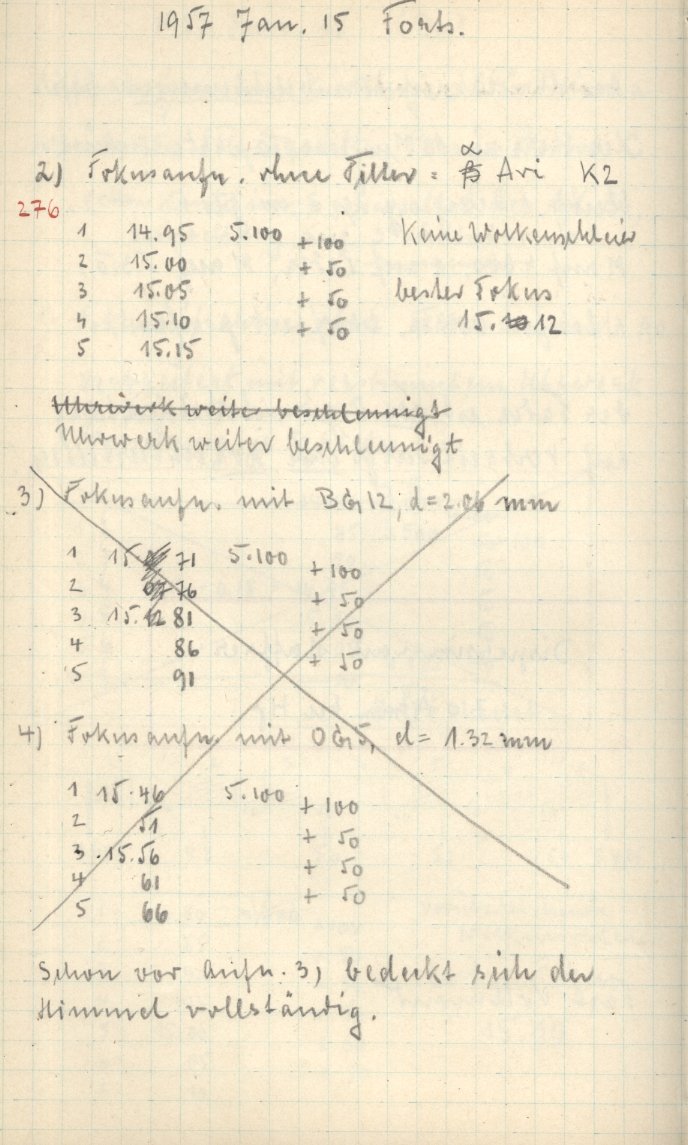 1957 Jan. 15 Forts.
2) Fokusaufn. ohne Filter = α Ari K2
276
1 14.95 5.100 + 100 Keine Wolkenschleier
2 15.00 + 50
3 15.05 + 50 bester Fokus
4 15.10 + 50 15.12
5 15.15
Uhrwerk weiter beschleunigt
Uhrwerk weiter beschleunigt
3) Fokusaufn. mit BG12, d=2.06 mm
1 15 71 5.100 + 100
2 76 + 50
3 15. 81 + 50
4 86 + 50
5 91
4) Fokusaufn. mit OG5, d= 1.32 mm
1 15.46 5.100 + 100
2 51 + 50
3 15.56 + 50
4 61 + 50
5 66
Schon vor Aufn. 3) bedeckt sich der
Himmel vollständig.